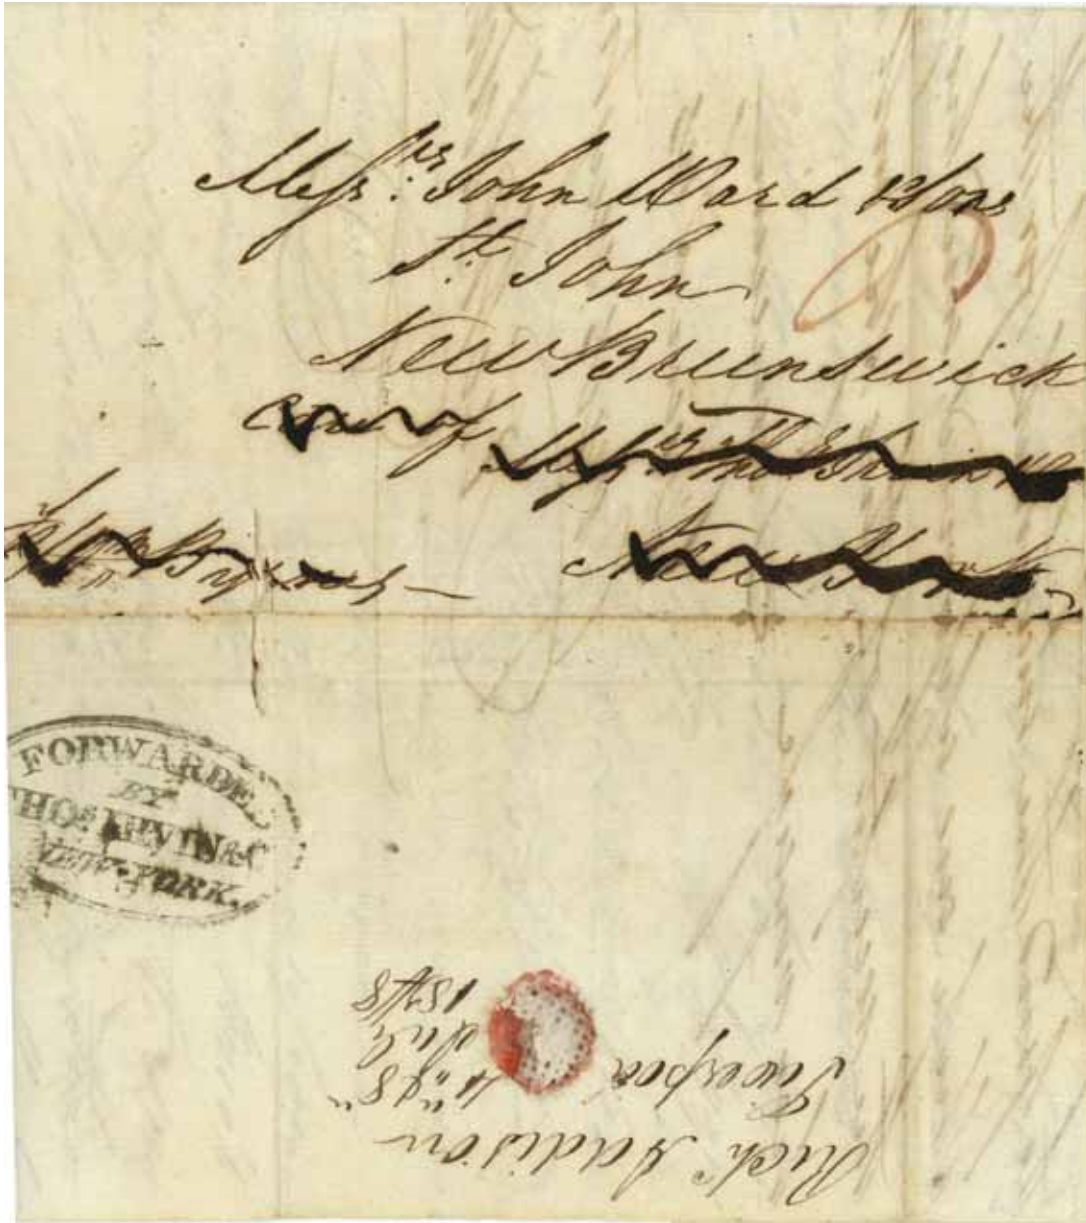 Messrs. John Ward & Sons
St. John
New Brunswick
Care of Messrs Thos Irvin
New York
FORWARDE
BY
THOs. IRVIN & C
NEW-YORK.
Richd Addison
Liverpoo
July